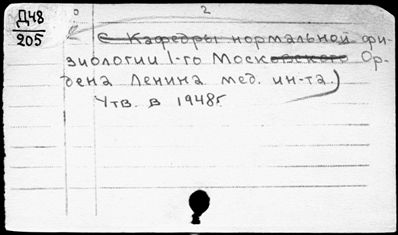 Д48
205
2
с Кафедры нормальной фи-
зиологии 1-го Московского Ор-
дена Ленина мед. ин-та.)
Утв. в 1948г.